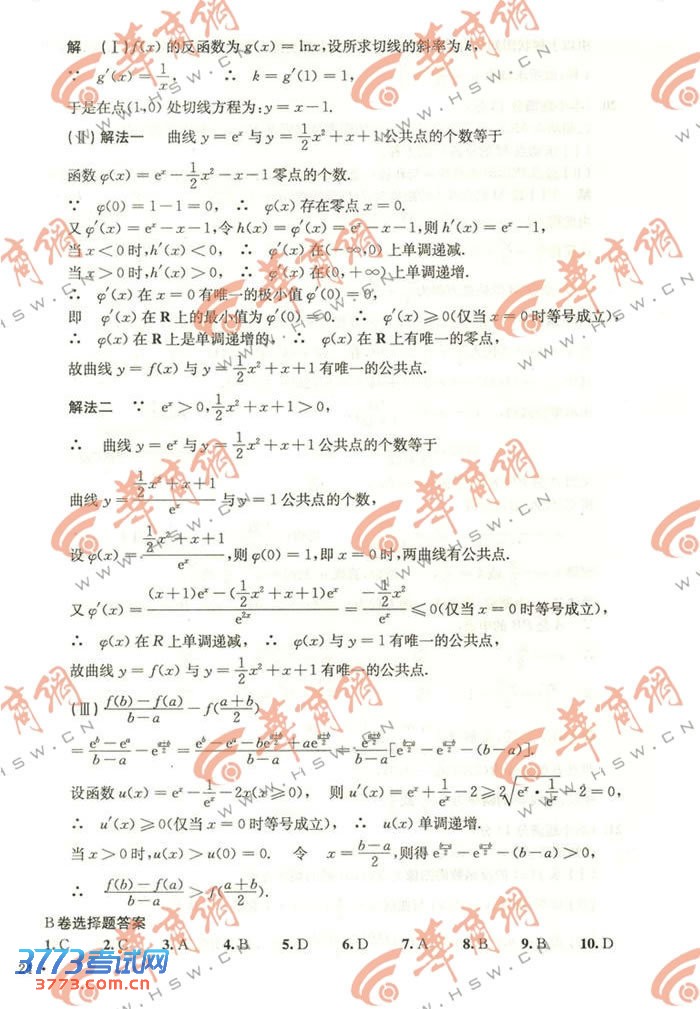 解 (Ⅰ)f(x)的反函数为g(x)=lnx,设所求切线的斜率为k,
∵ g′(x)=1/x, ∴ k=g′(1)=1,
于是在点(1,0)处切线方程为:y=x-1.
(Ⅱ)解法一 曲线y=eˣ与y=1/2x²+x+1公共点的个数等于
函数φ(x)=eˣ-1/2x²-x-1零点的个数.
∵ φ(0)=1-1=0, ∴ φ(x)存在零点x=0.
又φ′(x)=eˣ-x-1,令h(x)=φ′(x)=eˣ-x-1,则h′(x)=eˣ-1,
当x<0时,h′(x)<0, ∴ φ′(x)在(-∞,0)上单调递减.
当x>0时,h′(x)>0, ∴ φ′(x)在(0,+∞)上单调递增.
∴ φ′(x)在x=0有唯一的极小值φ′(0)=0,
即 φ′(x)在R上的最小值为φ′(0)=0. ∴ φ′(x)≥0(仅当x=0时等号成立),
∴ φ(x)在R上是单调递增的, ∴ φ(x)在R上有唯一的零点,
故曲线y=f(x)与y=1/2x²+x+1有唯一的公共点.
解法二 ∵ eˣ>0,1/2x²+x+1>0,
∴ 曲线y=eˣ与y=1/2x²+x+1公共点的个数等于
曲线y=(1/2x²+x+1)/eˣ与y=1公共点的个数,
设φ(x)=(1/2x²+x+1)/eˣ,则φ(0)=1,即x=0时,两曲线有公共点.
又φ′(x)=((x+1)eˣ-(1/2x²+x+1)eˣ)/e²ˣ=(-1/2x²)/eˣ≤0(仅当x=0时等号成立),
∴ φ(x)在R上单调递减, ∴ φ(x)与y=1有唯一的公共点,
故曲线y=f(x)与y=1/2x²+x+1有唯一的公共点.
(Ⅲ) (f(b)-f(a))/(b-a)-f((a+b)/2)
=(e^b-e^a)/(b-a)-e^((a+b)/2)=(e^b-e^a-be^((a+b)/2)+ae^((a+b)/2))/(b-a)=e^((a+b)/2)/(b-a)[e^((b-a)/2)-e^((a-b)/2)-(b-a)].
设函数u(x)=eˣ-1/eˣ-2x(x≥0), 则u′(x)=eˣ+1/eˣ-2≥2√(eˣ·1/eˣ)-2=0,
∴ u′(x)≥0(仅当x=0时等号成立), ∴ u(x)单调递增.
当x>0时,u(x)>u(0)=0. 令 x=(b-a)/2,则得e^((b-a)/2)-e^((a-b)/2)-(b-a)>0,
∴ (f(b)-f(a))/(b-a)>f((a+b)/2).
B卷选择题答案
1.C 2.C 3.A 4.B 5.D 6.D 7.A 8.B 9.B 10.D
3773考试网
3773.com.cn
華商網
WWW.HSW.CN